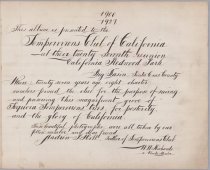 1900
1927
This album is presented to the
Sempervirens Club of California
at their twenty seventh Reunion
California Redwood Park.
Big Basin, Santa Cruz County
Where twenty seven years ago eight
members formed the club for the purpose of saving
and preserving this magnificent grove of
Sequoia Sempervirens Trees for posterity,
and the glory of California
These beautiful photographs are all taken by our
fellow member and dear friend
Andrew P. Hill. Father of Sempervirens Club
W.W. Richards